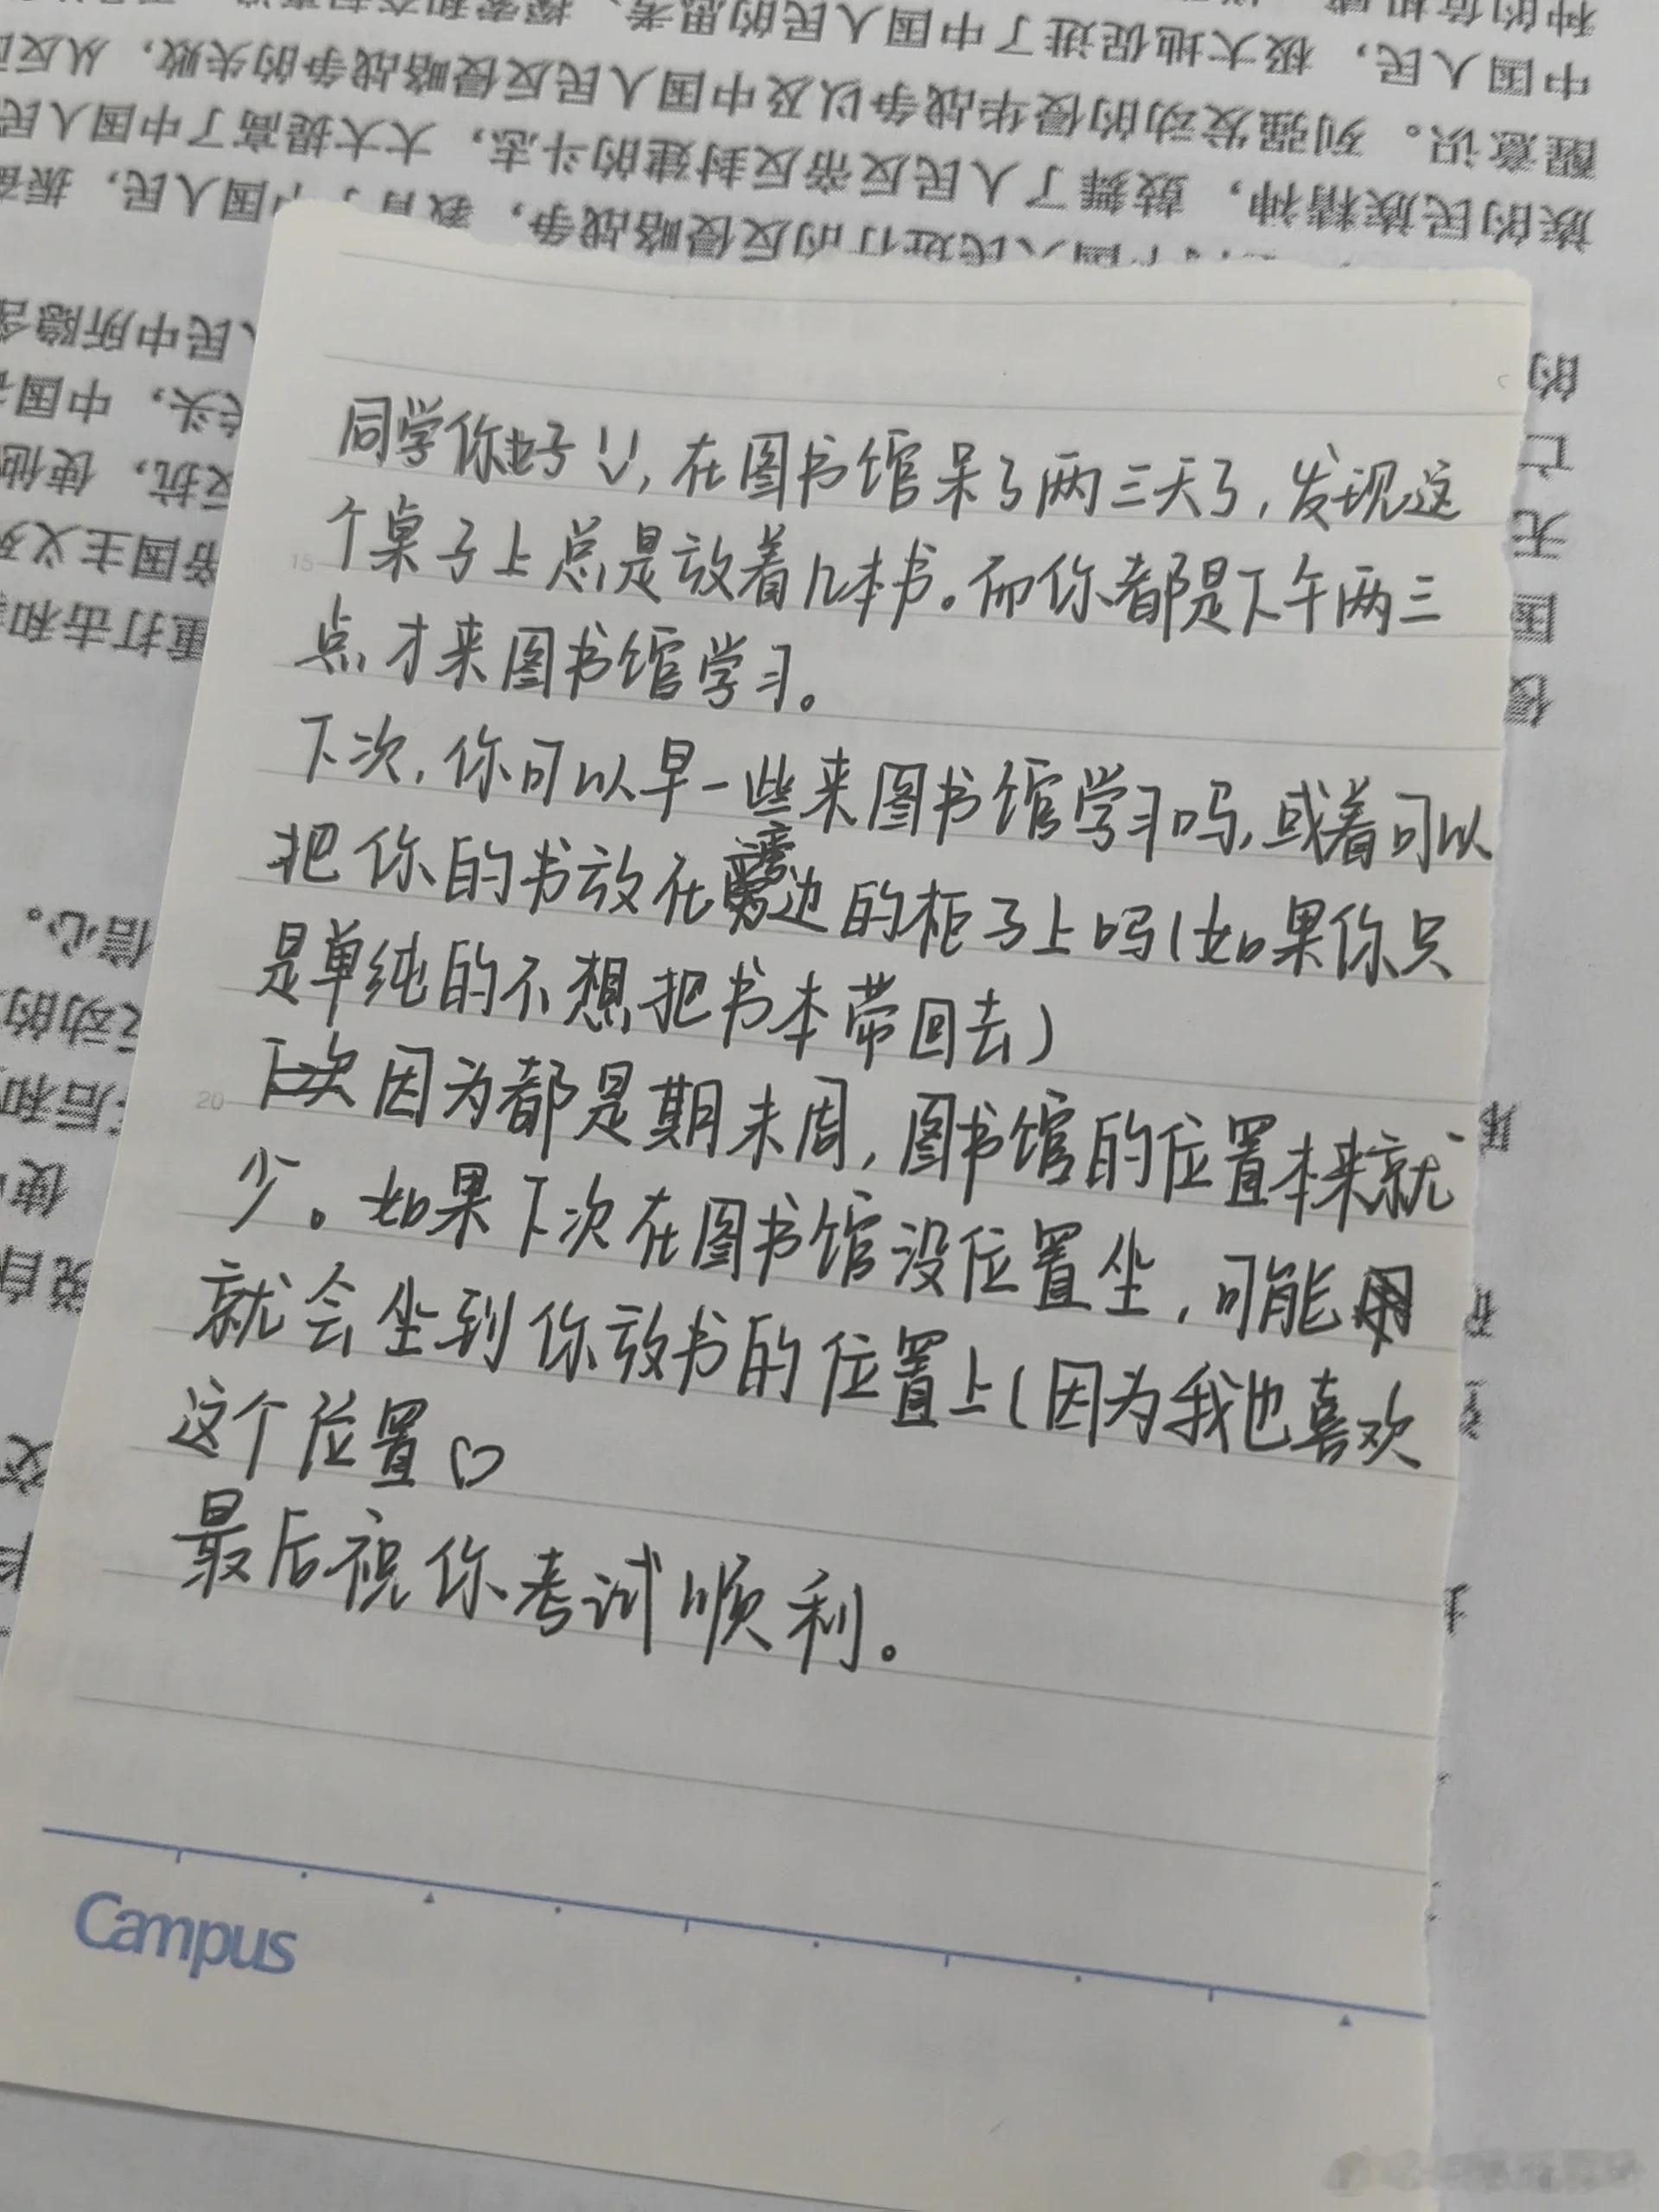 同学你好！！，在图书馆呆了两三天了，发现这
个桌子上总是放着几本书。而你都是下午两三
点才来图书馆学习。
下次，你可以早一些来图书馆学习吗，或着可以
把你的书放在旁边的柜子上吗（如果你只
是单纯的不想把书本带回去）
因为都是期末周，图书馆的位置本来就
少。如果下次在图书馆没位置坐，可能
就会坐到你放书的位置上（因为我也喜欢
这个位置♡
最后祝你考试顺利。
Campus
15
20
种的危机
中国人民，极大地促进了中国人民的思考、探索和奋起
醒意识。列强发动的侵华战争以及中国人民反侵略战争的失败，从反
族的民族精神，鼓舞了人民反帝反封建的斗志，大大提高了中国人民
国人民进行的反侵略战争，教育了中国人民，振奋
人民中所隐含
头，中国
反抗，使他
帝国主义列
重打击和
信心。
动的
后和
使
说自
的
亡
无
国
侵